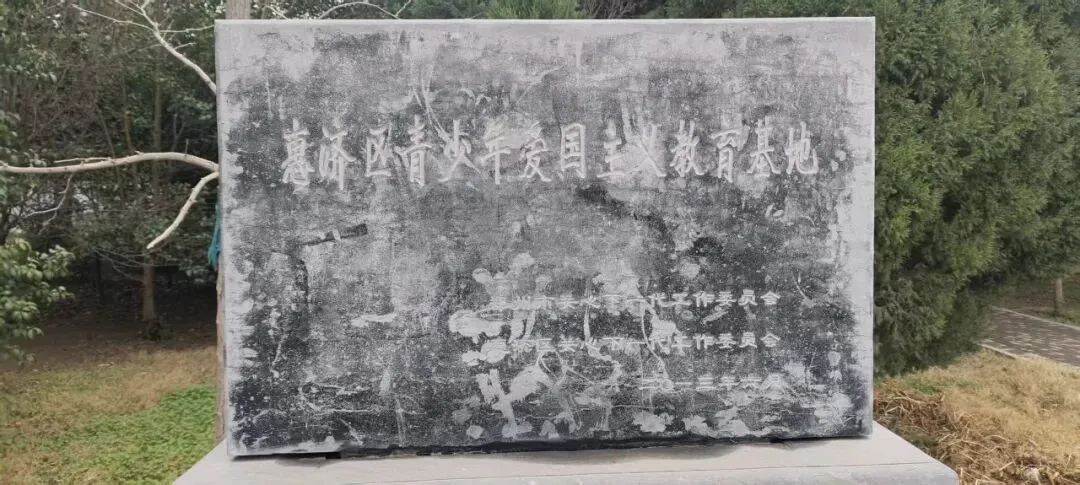 惠济区青少年爱国主义教育基地
州市关心下一代工作委员会
济区关心下一代工作委员会
二〇一三年六月